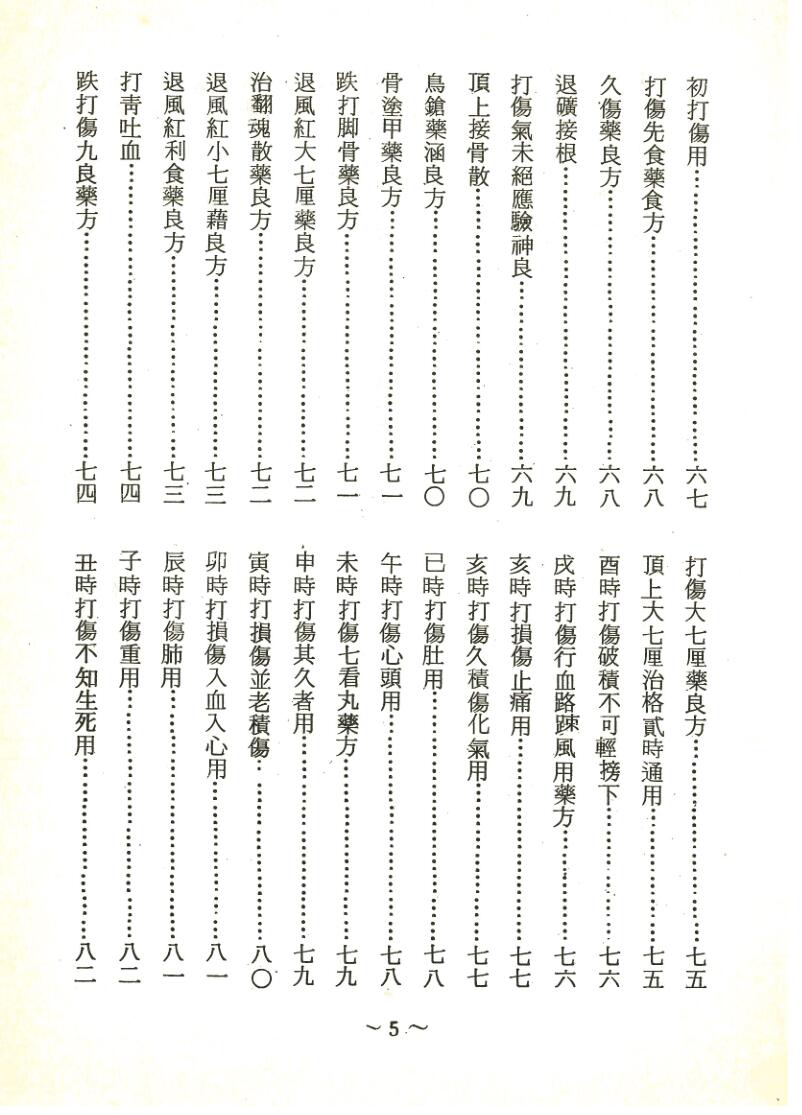 初打傷用……六七
打傷先食藥食方……六八
久傷藥良方……六八
退礦接根……六九
打傷氣未絕應驗神良……六九
頂上接骨散……七〇
鳥鎗藥涵良方……七〇
骨塗甲藥良方……七一
跌打脚骨藥良方……七一
退風紅大七厘藥良方……七二
治翻魂散藥良方……七二
退風紅小七厘藉良方……七三
退風紅利食藥良方……七三
打靑吐血……七四
跌打傷九良藥方……七四
打傷大七厘藥良方……七五
頂上大七厘治格貳時通用……七五
酉時打傷破積不可輕搒下……七六
戌時打傷行血路踈風用藥方……七六
亥時打損傷止痛用……七七
亥時打傷久積傷化氣用……七七
已時打傷肚用……七八
午時打傷心頭用……七八
未時打傷七看丸藥方……七九
申時打傷其久者用……七九
寅時打損傷並老積傷……八〇
卯時打損傷入血入心用……八一
辰時打傷肺用……八一
子時打傷重用……八二
丑時打傷不知生死用……八二
～5～